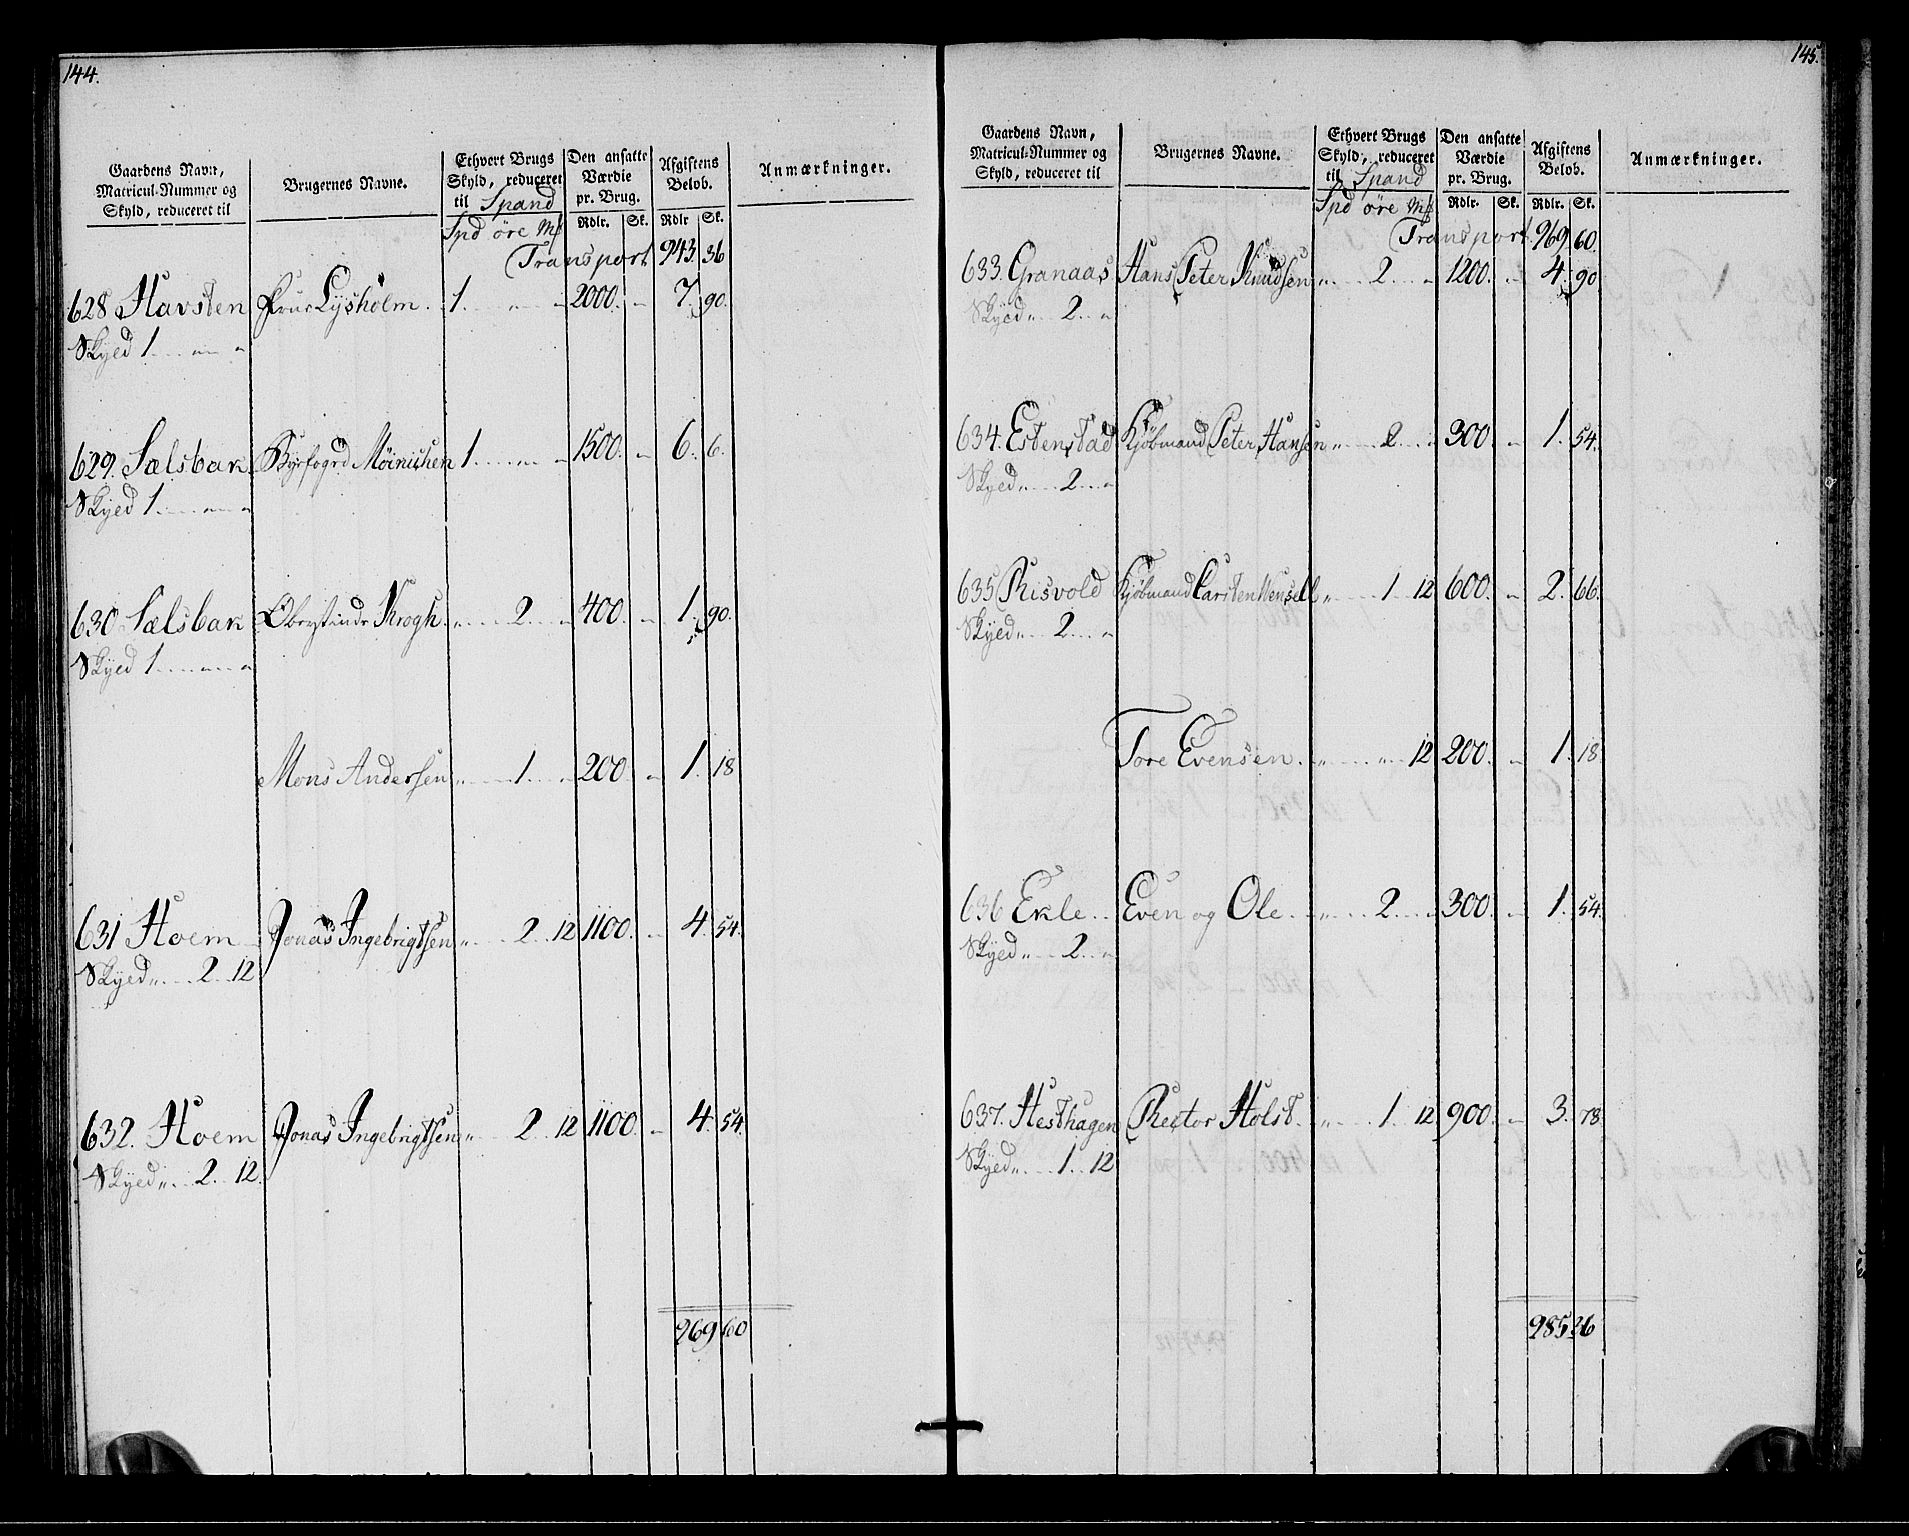 144.
Gaardens Navn, Matricul-Nummer og Skyld, reduceret til
Brugernes Navne.
Ethvert Brugs Skyld, reduceret til Spand
Den ansatte Værdie pr. Brug.
Afgiftens Belob.
Anmærkninger.
Spd öre Mk
Rdlr. Sk. Rdlr Sk.
Transport 943. 36
628 Havsten Frue Lysholm. 1. „ „ 2000. „ 7. 90.
Skyed 1 „ „
629. Sælsbak Byefogd Möinichen 1 „ „ 1500. „ 6. 6.
Skyed 1 „ „
630 Sælsbak Oberstinde Krogh. „ 2 „ 400. „ 1. 90.
Skyed 1 „ „
Mons Andersen „ 1 „ 200. „ 1. 18
631 Hoem Jonas Ingebrigtsen „ 2 12 1100. „ 4. 54.
Skyed „ 2 12
632. Hoem Jonas Ingebrigtsen „ 2 12 1100. „ 4. 54.
Skyed „ 2 12.
969 60
145.
Gaardens Navn, Matricul-Nummer og Skyld, reduceret til
Brugernes Navne.
Ethvert Brugs Skyld, reduceret til Spand
Den ansatte Værdie pr. Brug.
Afgiftens Belob.
Anmærkninger.
Spd öre Mk
Rdlr. Sk. Rdlr. Sk.
Transport 969 60.
633. Granaas Hans Peter Knudsen „ 2 „ 1200. „ 4. 90
Skyed „ 2 „
634. Estenstad Kjöbmand Peter Hansen „ 2 „ 300. „ 1. 54.
Skyed „ 2 „
635 Risvold Kjöbmand Carsten Wensell „ 1 12 600. „ 2. 66.
Skyed „ 2 „
Tore Evensen. „ „ 12 200. „ 1. 18
636 Ekle Even og Ole „ 2 „ 300. „ 1. 54.
Skyed „ 2 „
637. Hesthagen Rector Holst. „ 1. 12 900. „ 3. 78.
Skyed „ 1 12
985 36